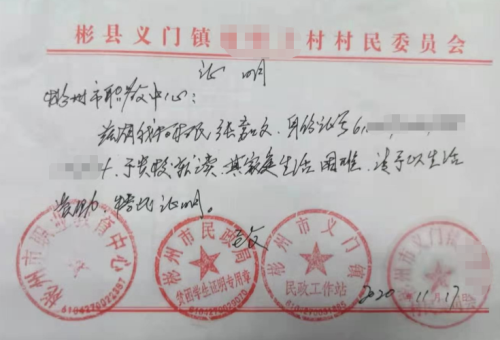 彬县义门镇 村村民委员会
证明
彬州市职教中心：
兹有我村村民张 文，身份证号61
4，于贵校就读，其家庭生活困难，请予以生活
资助，特此证明。
致
彬州市职业教育中心
6104270022387
彬州市民政局
贫困学生证明专用章
彬州市义门镇
民政工作站
彬州市义门镇
2020 11.17